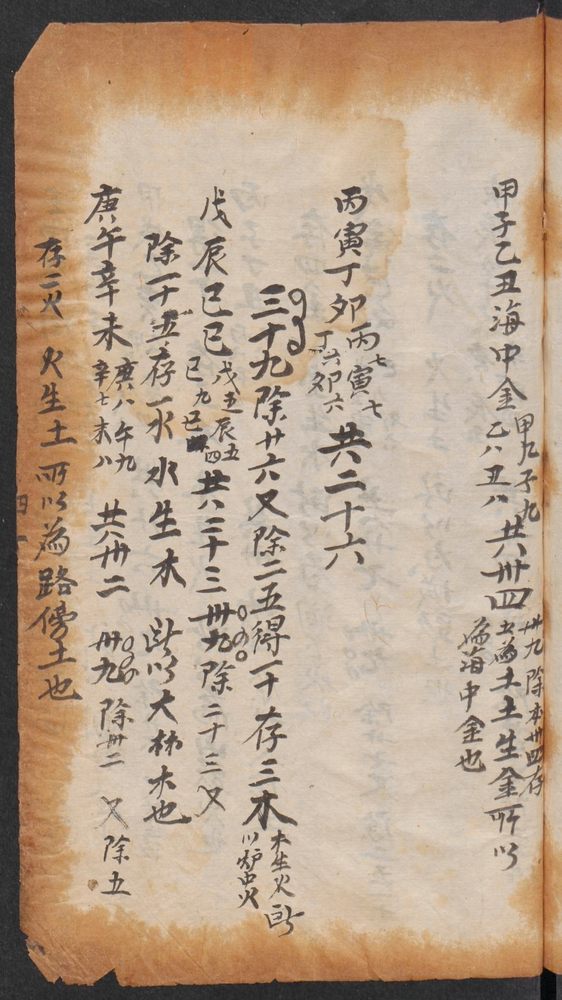 甲子乙丑海中金 甲九子九 乙八丑八 共卅四 卅九除本卅四存
五為土土生金所以
為海中金也
丙寅丁夘 丙七寅七 丁六夘六 共二十六
三十九除廿六又除二五得一十存三木 木生火所
以炉中火
戊辰己巳 戊五辰五 己九巳四 共二十三 卅九除二十三又
除一十五存一水 水生木 所以大林木也
庚午辛未 庚八午九 辛七未八 共卅二 卅九 除卅二 又除五
存二火 火生土 所以為路傍土也